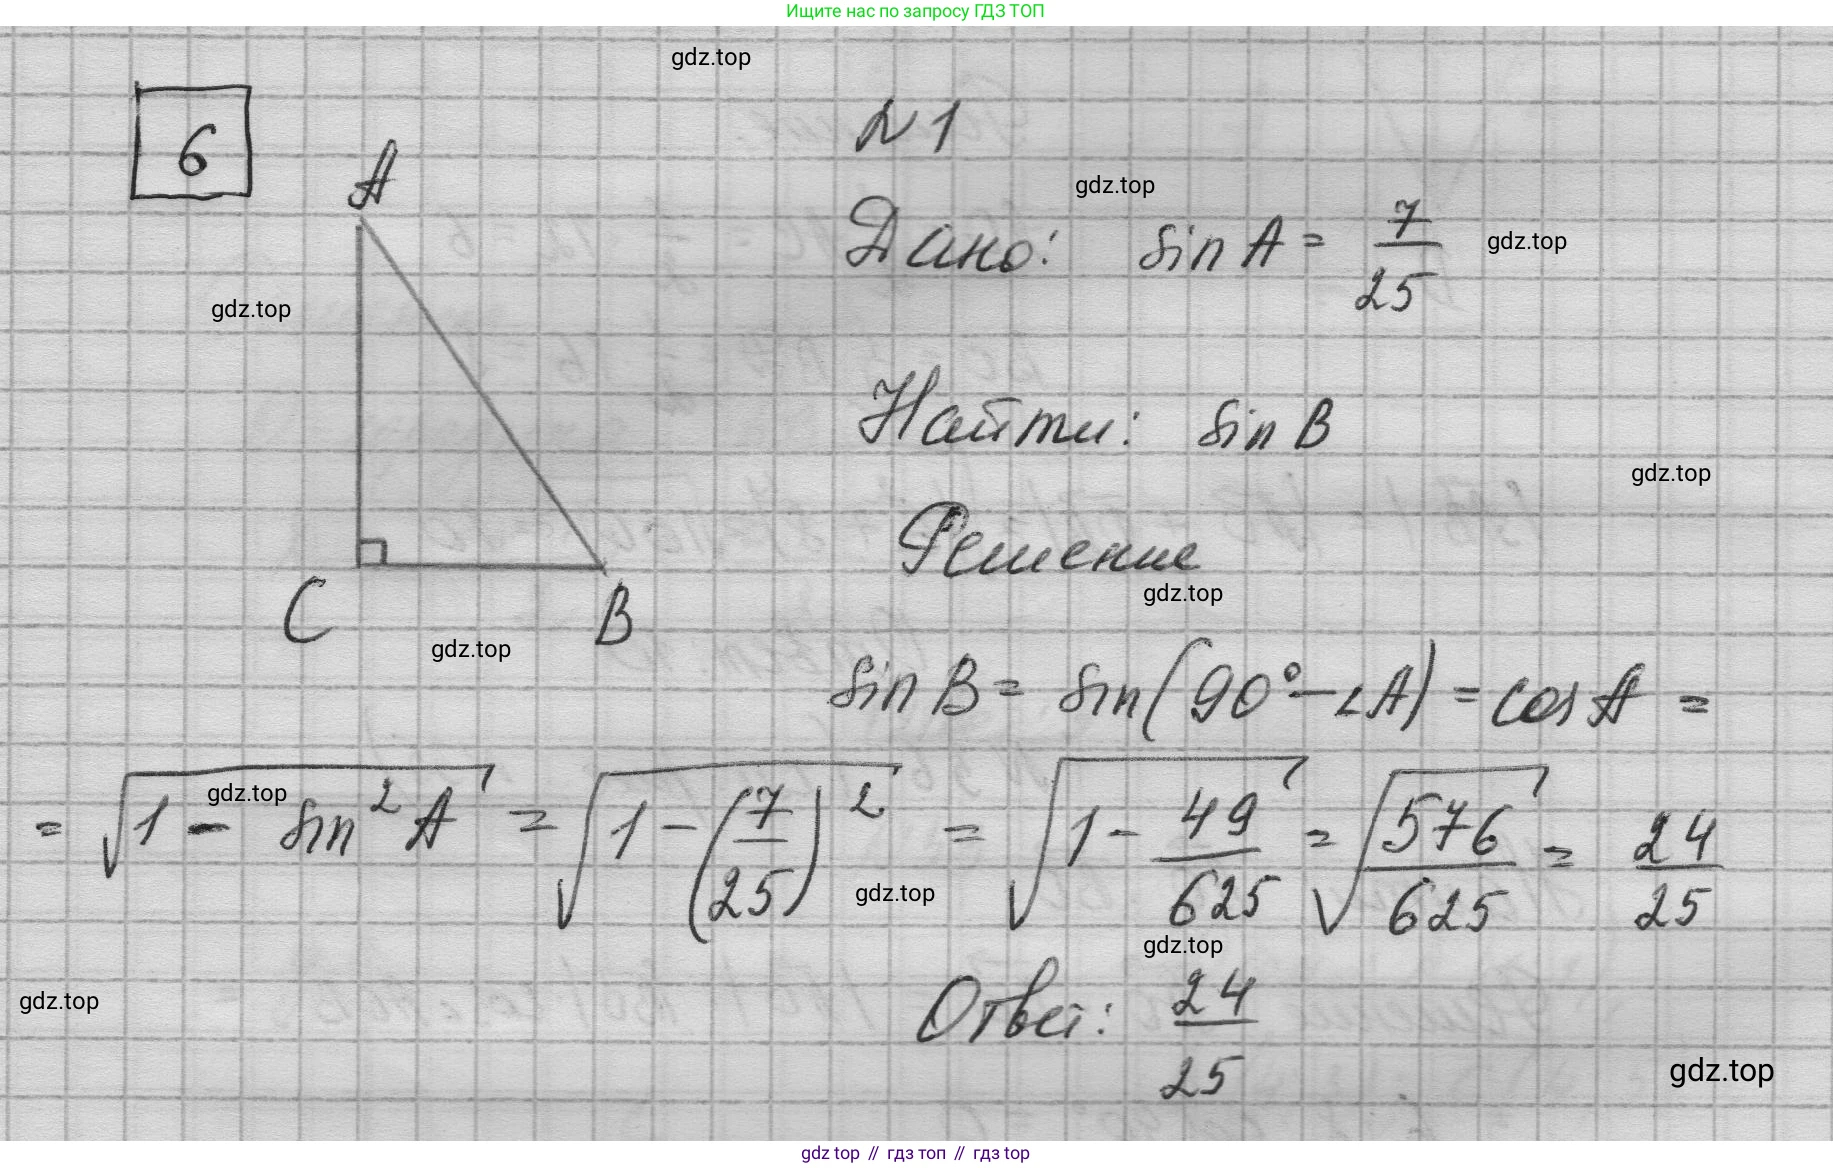 Ищите нас по запросу ГДЗ ТОП
gdz.top
6
N 1
A
gdz.top
Дано: sin A = 7/25
gdz.top
gdz.top
Найти: sin B
gdz.top
Решение
gdz.top
C
B
gdz.top
sin B = sin(90° − ∠A) = cos A =
= √(1 − sin² A) = √(1 − (7/25)²) = √(1 − 49/625) = √(576/625) = 24/25
gdz.top
gdz.top
gdz.top
Ответ: 24/25
gdz.top
gdz.top
gdz top // гдз топ // гдз top